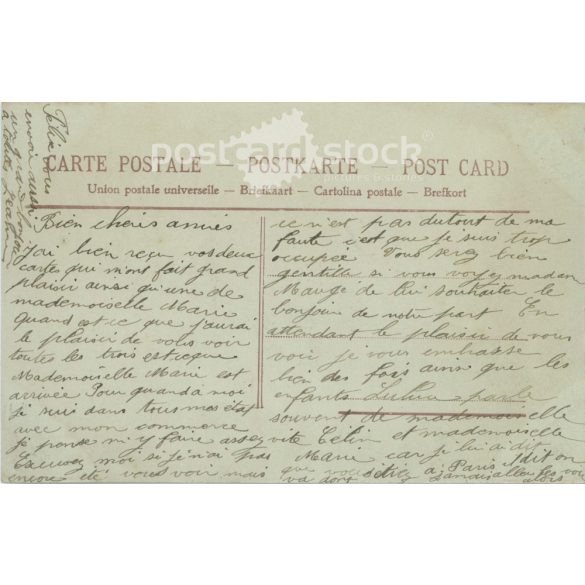 CARTE POSTALE — POSTKARTE — POST CARD
Union postale universelle — Briefkaart — Cartolina postale — Brefkort
postcardstock
pictures & stories
Bien chers amies
j'ai bien reçu vos deux
cartes qui m'ont fait grand
plaisir ainsi qu'une de
mademoiselle Marie
quand est ce que j'aurai
le plaisir de vous voir
toutes les trois est ce que
Mademoiselle Marie est
arrivée Pour quand a moi
je suis dans tous mes état
avec mon commerce
je pense m'y faire assez vite
Excusez moi si je n'ai pas
encore été vous voir mais
ce n'est pas du tout de ma
faute c'est que je suis trop
occupée Vous serez bien
gentille si vous voyez madam
de lui souhaiter le
bonjour de notre part En
attendant le plaisir de vous
voir je vous embrasse
bien des fois ainsi que les
enfants Lulu parle
souvent de mademoiselle
Célin et mademoiselle
Marie car je lui ai dit
que vous étiez a Paris
va dont
vous
envoi aussi
un gros
a toutes